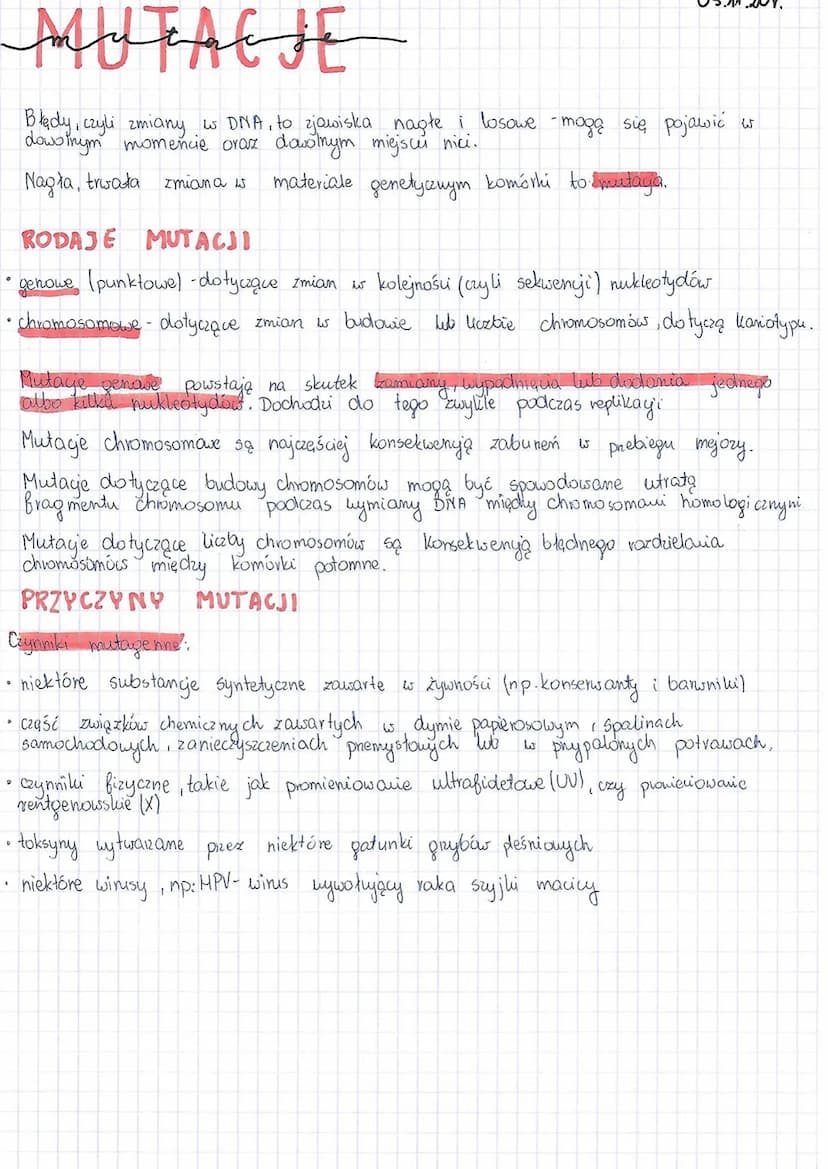 MUTACJE
mutacje
Błędy, czyli zmiany w DNA, to zjawiska nagłe i losowe - mogą się pojawić w
dowolnym momencie oraz dowolnym miejscu nici.
Nagła, trwała zmiana w materiale genetycznym komórki to mutacja.
RODAJE MUTACJI
• genowe (punktowe) - dotyczące zmian w kolejności (czyli sekwencji) nukleotydów
• chromosomowe - dotyczące zmian w budowie lub liczbie chromosomów, dotyczą kariotypu.
Mutacje genowe powstają na skutek zamiany, wypadnięcia lub dodania jednego
albo kilku nukleotydów. Dochodzi do tego zwykle podczas replikacji
Mutacje chromosomowe są najczęściej konsekwencją zaburzeń w przebiegu mejozy.
Mutacje dotyczące budowy chromosomów mogą być spowodowane utratą
fragmentu chromosomu podczas wymiany DNA między chromosomami homologicznymi
Mutacje dotyczące liczby chromosomów są konsekwencją błędnego rozdzielania
chromosomów między komórki potomne.
PRZYCZYNY MUTACJI
Czynniki mutagenne:
• niektóre substancje syntetyczne zawarte w żywności (np. konserwanty i barwniki)
• część związków chemicznych zawartych w dymie papierosowym, spalinach
samochodowych, zanieczyszczeniach przemysłowych lub w przypalonych potrawach,
• czynniki fizyczne, takie jak promieniowanie ultrafioletowe (UV), czy promieniowanie
rentgenowskie (X)
• toksyny wytwarzane przez niektóre gatunki grzybów pleśniowych
• niektóre wirusy, np: HPV - wirus wywołujący raka szyjki macicy